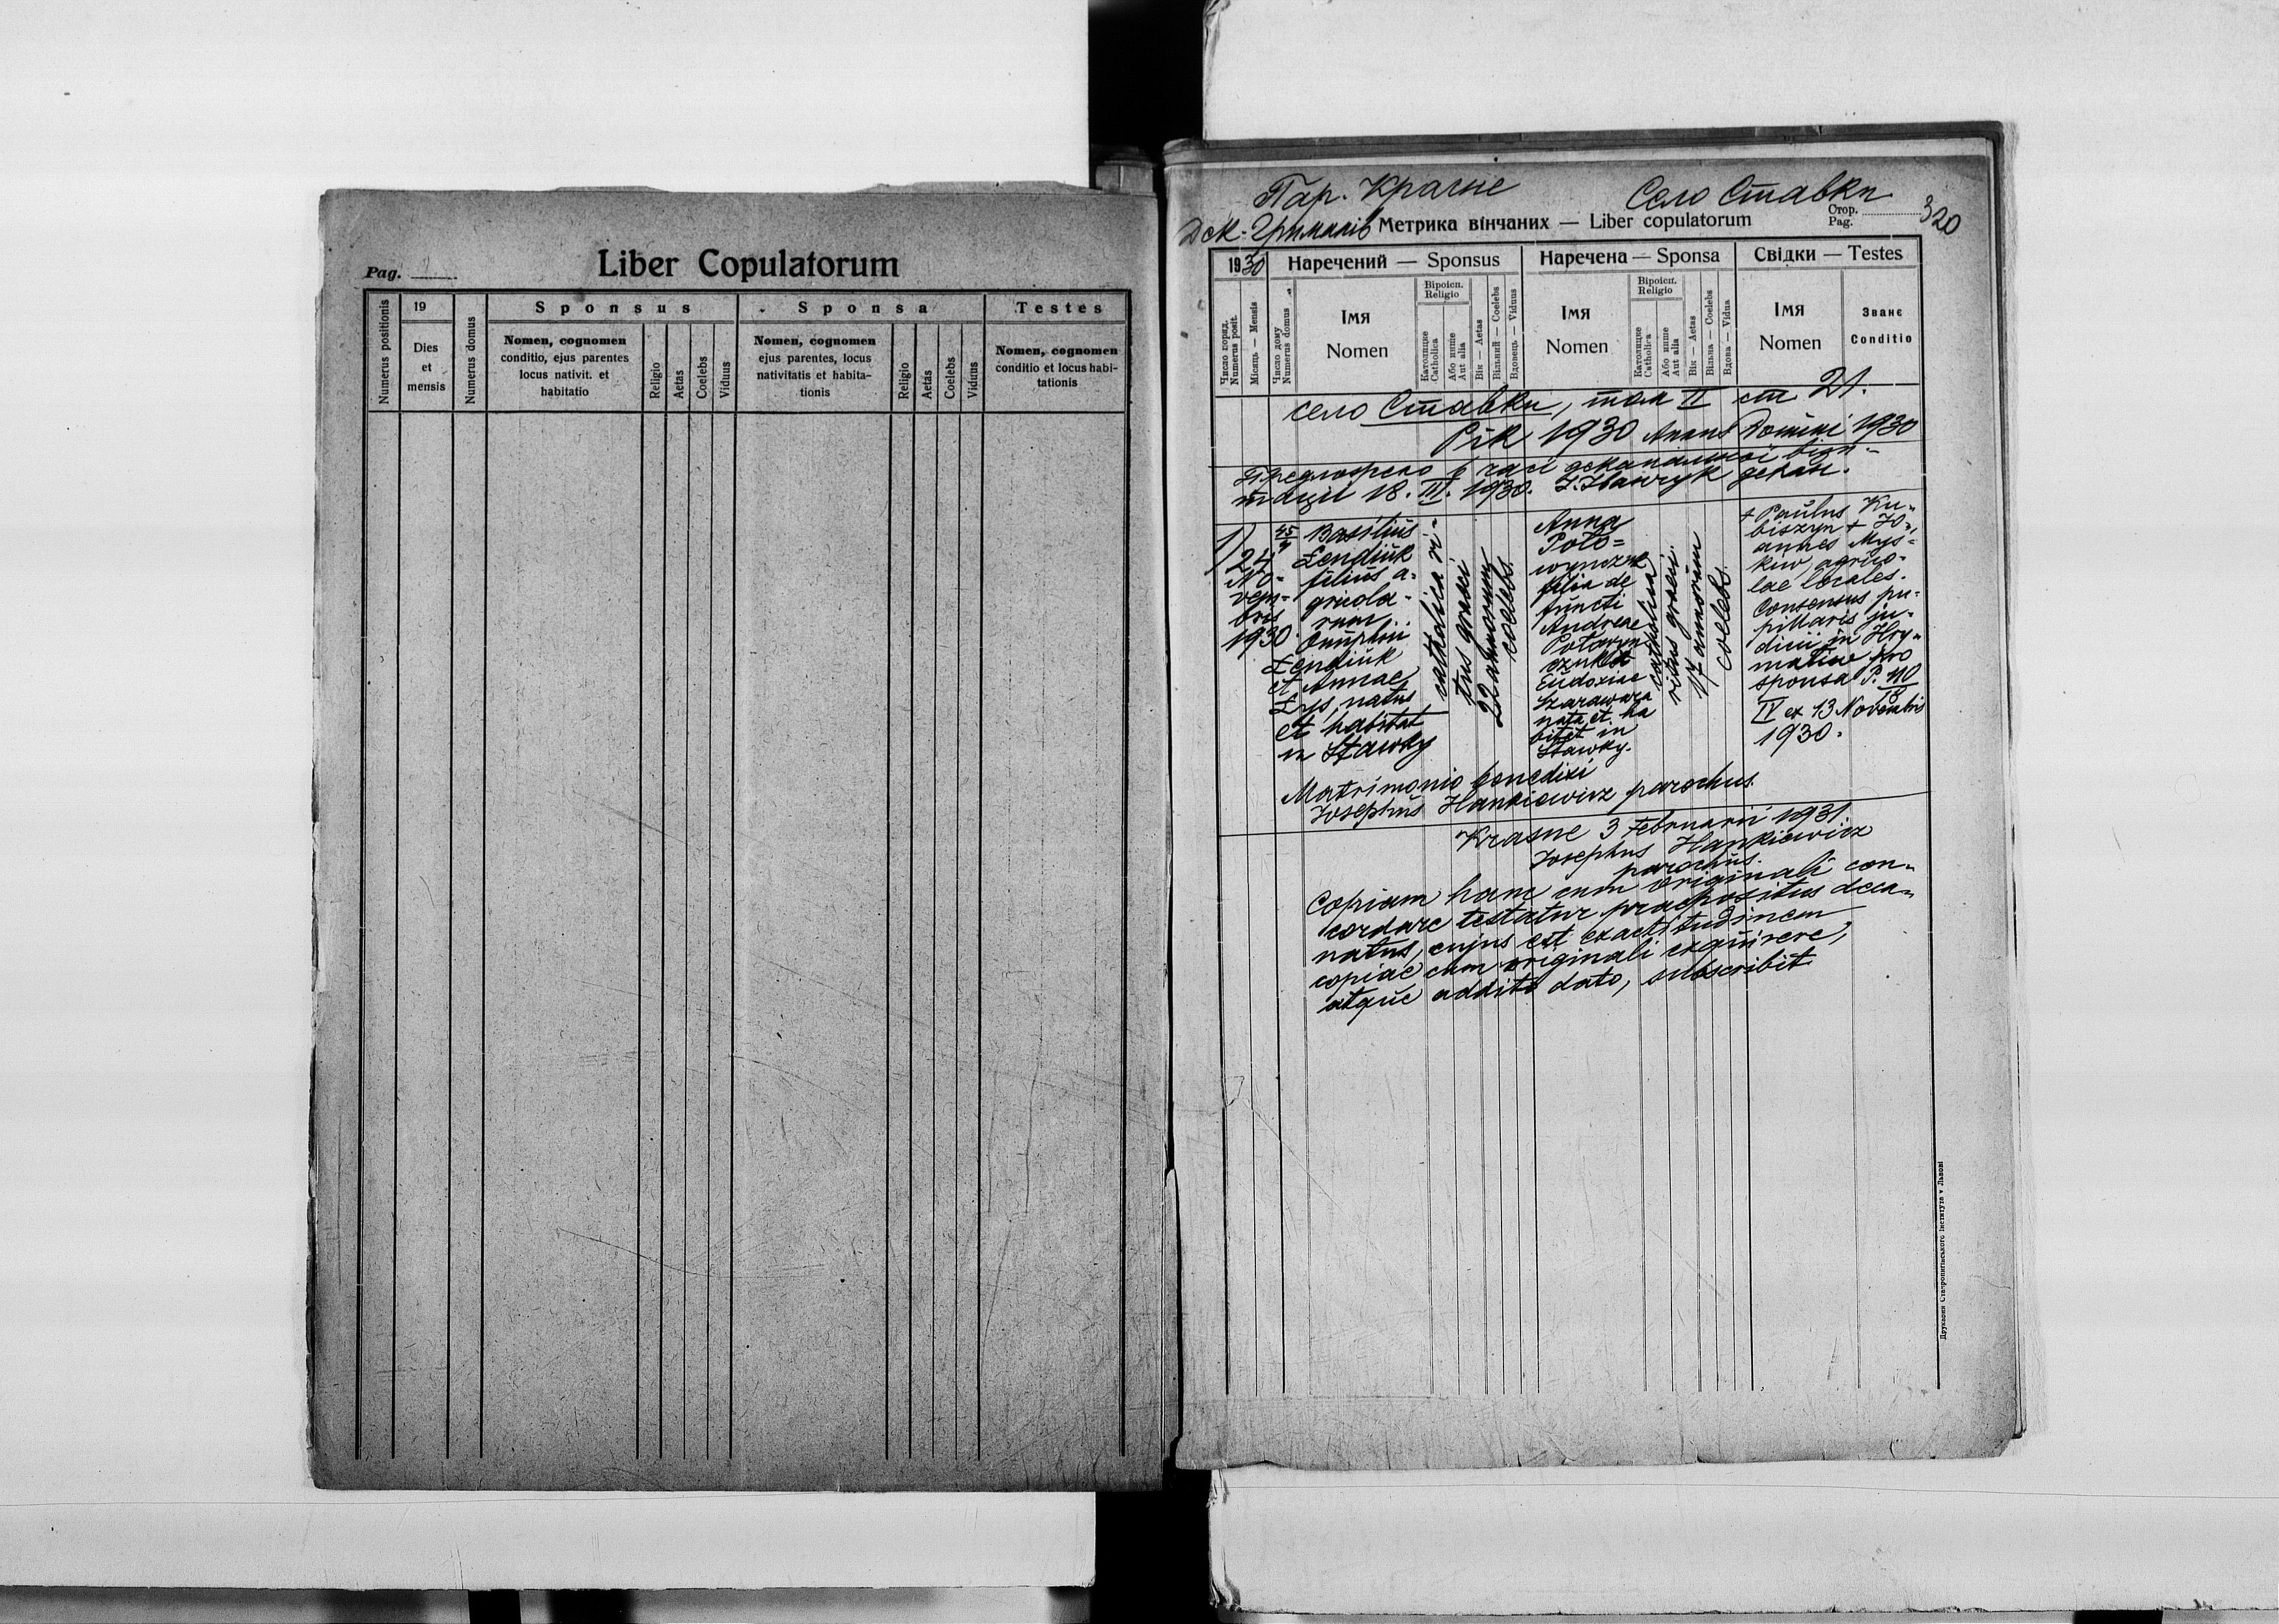 Pag.
Liber Copulatorum
Numerus positionis
19
Dies
et
mensis
Numerus domus
Sponsus
Nomen, cognomen
conditio, ejus parentes
locus nativit. et
habitatio
Religio
Aetas
Coelebs
Viduus
Sponsa
Nomen, cognomen
ejus parentes, locus
nativitatis et habita-
tionis
Religio
Aetas
Coelebs
Viduus
Testes
Nomen, cognomen
conditio et locus habi-
tationis
Пар. Красне
Село Ставки
Дек. Грималів
Метрика вінчаних — Liber copulatorum
Стор.
Pag.
320
1930
Наречений — Sponsus
Наречена — Sponsa
Свідки — Testes
Число поряд.
Numerus posit.
Місяць — Mensis
Число дому
Numerus domus
Імя
Nomen
Віроісп.
Religio
Католицке
Catholica
Або инше
Aut alia
Вік — Aetas
Вільний — Coelebs
Вдовець — Viduus
Імя
Nomen
Віроісп.
Religio
Католицке
Catholica
Або инше
Aut alia
Вік — Aetas
Вільна — Coelebs
Вдова — Vidua
Імя
Nomen
Званє
Conditio
село Ставки, том II ст 21.
Рік 1930 Annus Domini 1930
Предложено в часі деканальної візи-
тації 18. III. 1930. декан.
1)
24
No-
vem-
bris
1930.
45
Basilius
Lendiuk
filius a-
gricola-
rum
Onuphrii
Lendiuk
et Annae
Lys, natus
et habitat
in Stawky
catholica ri-
tus graeci
22 annorum
coelebs.
Anna
Poto=
wynczuk
filia de
functi
Andreae
Potowyn
czuk et
Eudoxiae
Szarawara
nata et ha
bitat in
Stawky.
catholica
ritus graeci.
17 annorum
coelebs.
+ Paulus Ku-
biszyn + Jo-
annes Mys-
kiw, agrico-
lae locales.
Consensus pu-
pillaris ju-
dicii in Hry-
maliw pro
sponsa P. 110
18
IV ex 13 Novembris
1930.
Matrimonio benedixi
Josephus Hankiewicz parochus.
Krasne 3 Februarii 1931.
Josephus Hankiewicz
parochus.
Copiam hanc cum originali con-
cordare testatur praepositus deca-
natus, cujus est exactitudinem
copiae cum originali exquirere,
atque addito dato, subscribit
Друкарня Ставропигійського Інститута у Львові